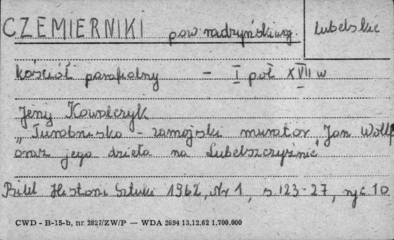 CZEMIERNIKI pow. radzyński wg. lubelskie
kościół parafialny - I poł XVII w
Jerzy Kowalczyk
"Turobińsko - zamojski murator Jan Wolff
oraz jego dzieła na Lubelszczyźnie"
Biul. Historii Sztuki 1962, Nr 1, s. 123-27, ryc 10
CWD - B-15-b, nr 2827/ZW/P — WDA 2694 13.12.62 1.700.000